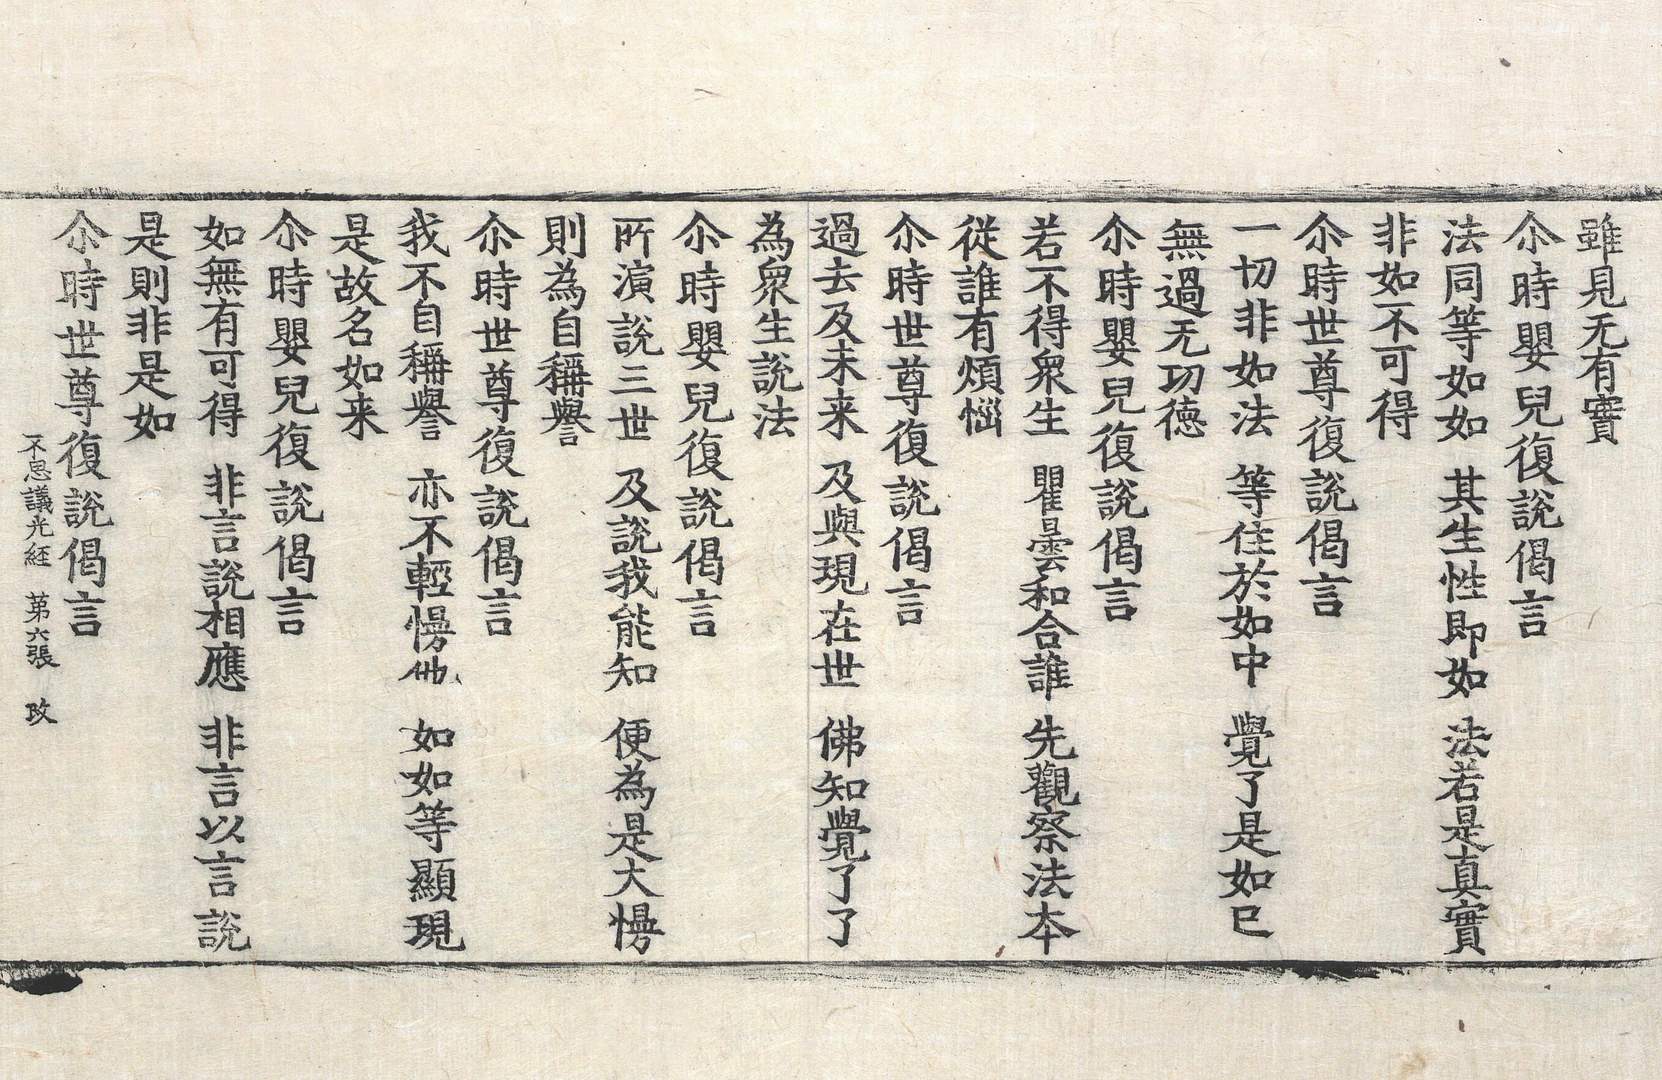 雖見无有實
尒時嬰兒復說偈言
法同等如如 其生性即如 法若是真實
非如不可得
尒時世尊復說偈言
一切非如法 等住於如中 覺了是如已
無過无功德
尒時嬰兒復說偈言
若不得衆生 瞿曇和合誰 先觀察法本
從誰有煩惱
尒時世尊復說偈言
過去及未来 及與現在世 佛知覺了了
為衆生說法
尒時嬰兒復說偈言
所演說三世 及說我能知 便為是大慢
則為自稱譽
尒時世尊復說偈言
我不自稱譽 亦不輕慢他 如如等顯現
是故名如来
尒時嬰兒復說偈言
如無有可得 非言說相應 非言以言說
是則非是如
尒時世尊復說偈言
不思議光経 第六張 改